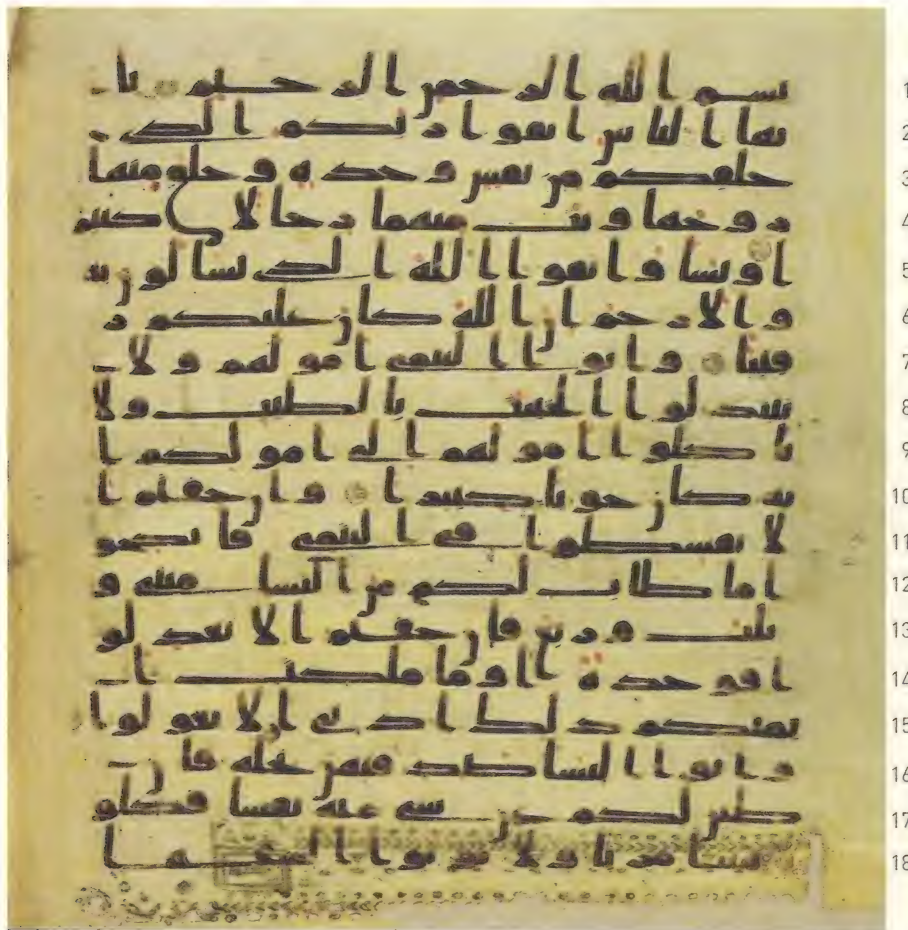 1 بسم الله الرحمن الرحيم يا
2 يها الناس اتقوا ربكم الذي
3 خلقكم من نفس وحدة وخلق منها
4 زوجها وبث منهما رجالا كثير
5 ا ونسا واتقوا الله الذي تسالون به
6 والارحم ان الله كان عليكم ر
7 قيبا واتوا اليتمى امولهم ولا
8 تتبدلوا الخبيث بالطيب ولا
9 تاكلوا امولهم الى امولكم ا
10 نه كان حوبا كبيرا وان خفتم ا
11 لا تقسطوا في اليتمى فانكحو
12 ا ما طاب لكم من النسا مثنى و
13 ثلث وربع فان خفتم الا تعدلو
14 ا فوحدة او ما ملكت ا
15 يمنكم ذلك ادنى الا تعولوا
16 واتوا النسا صدقتهن نحلة فان
17 طبن لكم عن شي منه نفسا فكلو
18 ه هنيا مريا ولا توتوا السفها